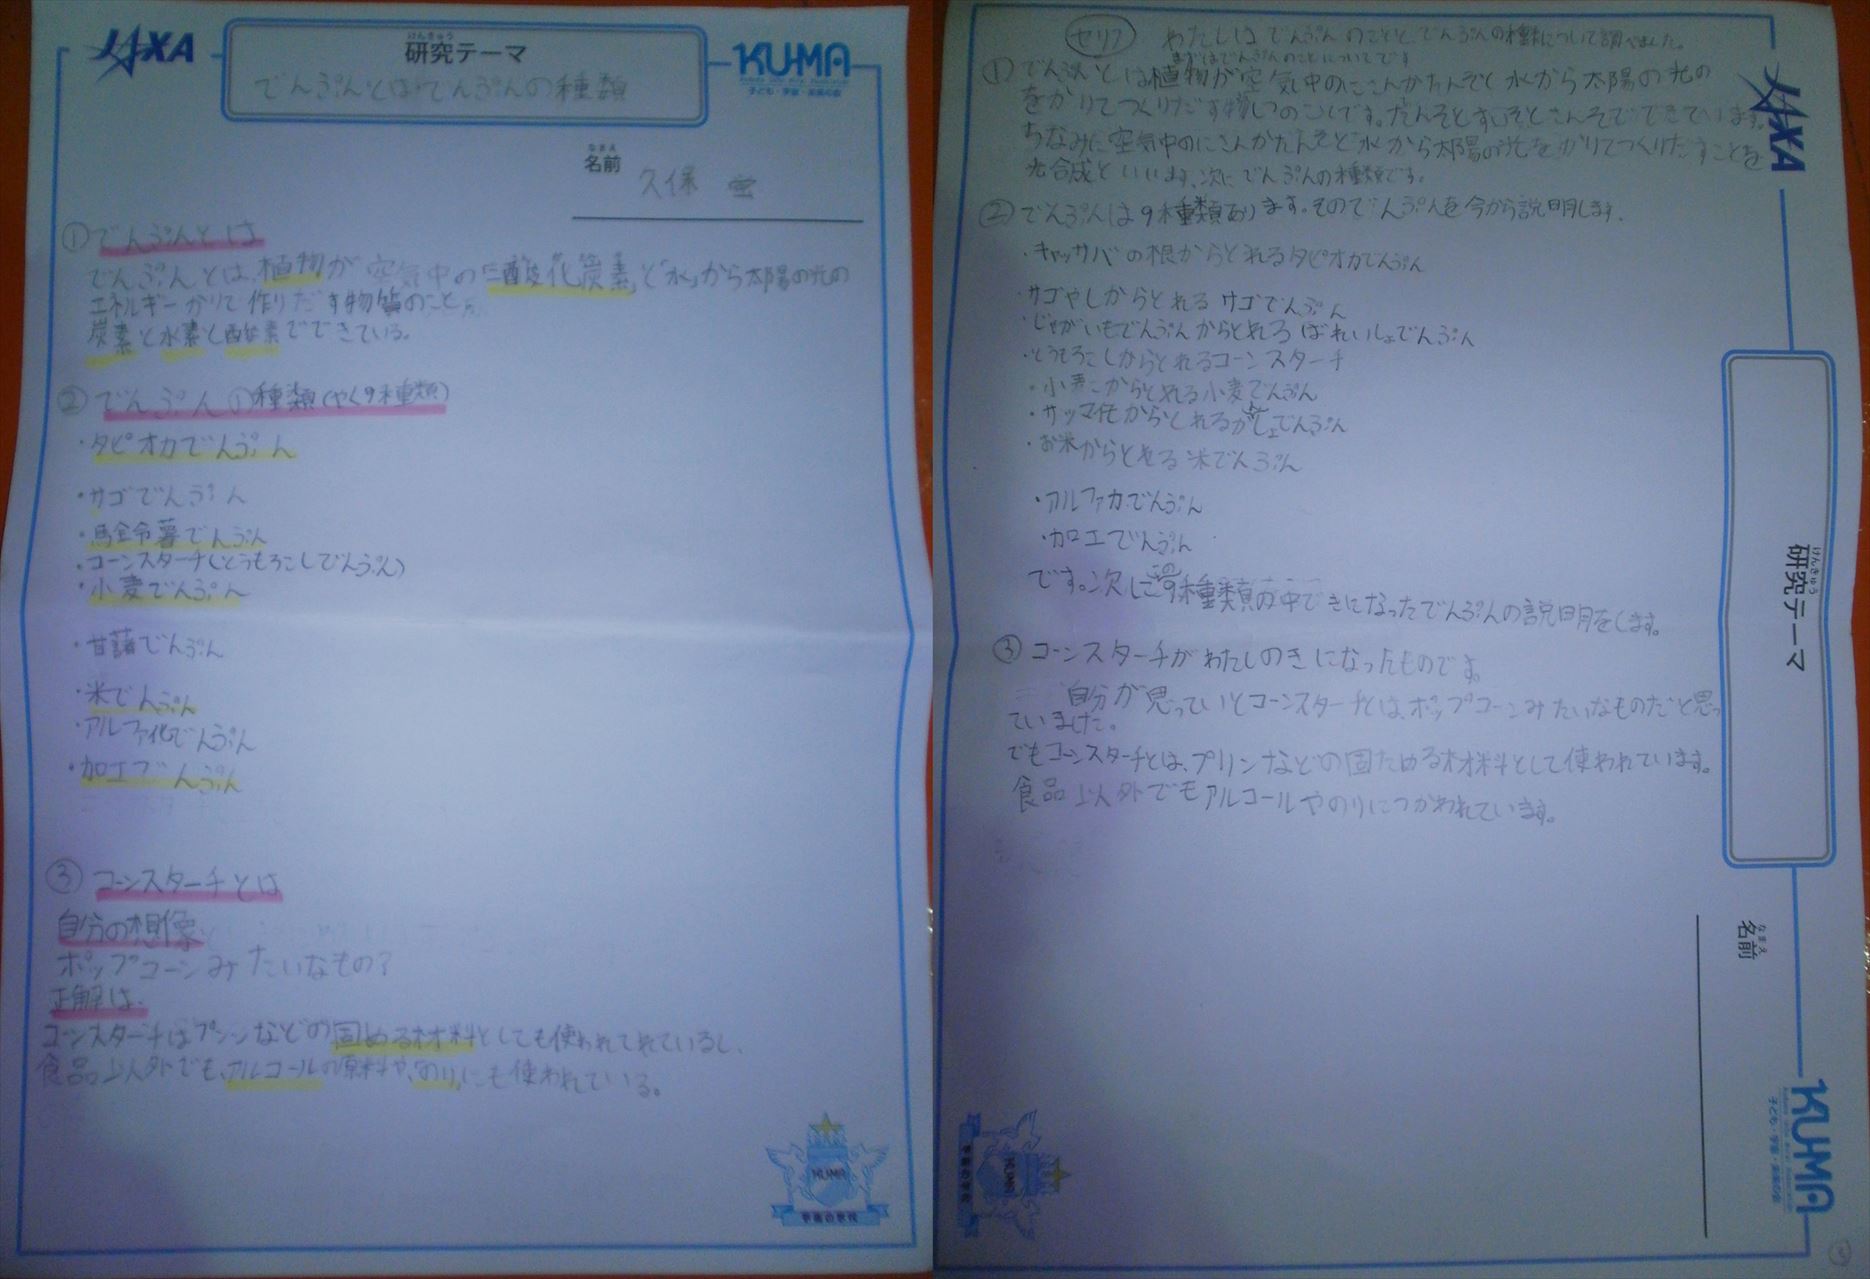 JAXA
けんきゅう
研究テーマ
でんぷんとはでんぷんの種類
KUMA
子ども・宇宙・未来の会
なまえ
名前
久保
①でんぷんとは
でんぷんとは、植物が空気中の「二酸化炭素」と「水」から太陽の光の
エネルギーかりて作りだす物質のこと
炭素と水素と酸素でできている。
②でんぷんの種類(やく9種類)
・タピオカでんぷん
・サゴでんぷん
・馬鈴薯でんぷん
・コーンスターチ(とうもろこしでんぷん)
・小麦でんぷん
・甘藷でんぷん
・米でんぷん
・アルファ化でんぷん
・加工でんぷん
③コーンスターチとは
自分の想像
ポップコーンみたいなもの?
正解は、
コーンスターチはプリンなどの固める材料としても使われてれているし、
食品以外でも、アルコールの原料や、のりにも使われている。
KUMA
宇宙の学校
セリフ わたしはでんぷんのことと、でんぷんの種類について調べました。
まずはでんぷんのことについてです
①でんぷんとは植物が空気中のにさんかたんそと水から太陽の光の
をかりてつくりだす物しつのことです。たんそとすいそとさんそでできています。
ちなみに空気中のにさんかたんそと水から太陽の光をかりてつくりだすことを
光合成といいます。次にでんぷんの種類です。
②でんぷんは9種類あります。そのでんぷんを今から説明します。
・キャッサバの根からとれるタピオカでんぷん
・サゴやしからとれるサゴでんぷん
・じゃがいもでんぷんからとれるばれいしょでんぷん
・とうもろこしからとれるコーンスターチ
・小麦こからとれる小麦でんぷん
・サツマ化からとれるかんしょでんぷん
・お米からとれる米でんぷん
・アルファカでんぷん
・カロエでんぷん
です。次にこの9種類の中できになったでんぷんの説明をします。
③コーンスターチがわたしのきになったものです。
自分が思っていとコーンスターチとは、ポップコーンみたいなものだと思っ
ていました。
でもコーンスターチとは、プリンなどの固ためる材料として使われています。
食品以外でもアルコールやのりにつかわれています。
JAXA
けんきゅう
研究テーマ
なまえ
名前
KUMA
子ども・宇宙・未来の会
KUMA
宇宙の学校